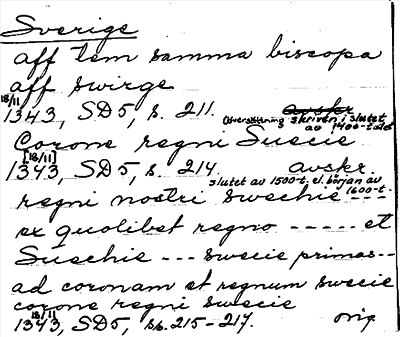 Sverige
aff tem samma biscopa
aff swirge
18/11
1343, SD5, s. 211. avskr.
Översättning skriven i slutet
av 1400-talet
Corone regni Suecie
[18/11]
1343, SD5, s. 214. avskr.
slutet av 1500-t. el. början av
1600-t.
regni nostri swechie ---
ex quolibet regno ----- et
Suechie --- swecie primas--
ad coronam et regnum swecie
corone regni swecie
18/11
1343, SD5, ss. 215-217. orig.